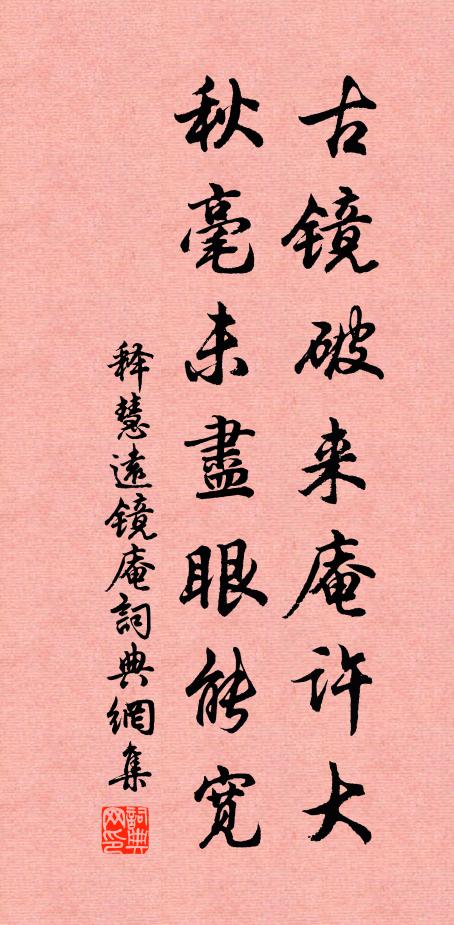 古镜破来庵许大
秋毫未盡眼能宽
释慧遠镜庵詞典網集
詞典网印